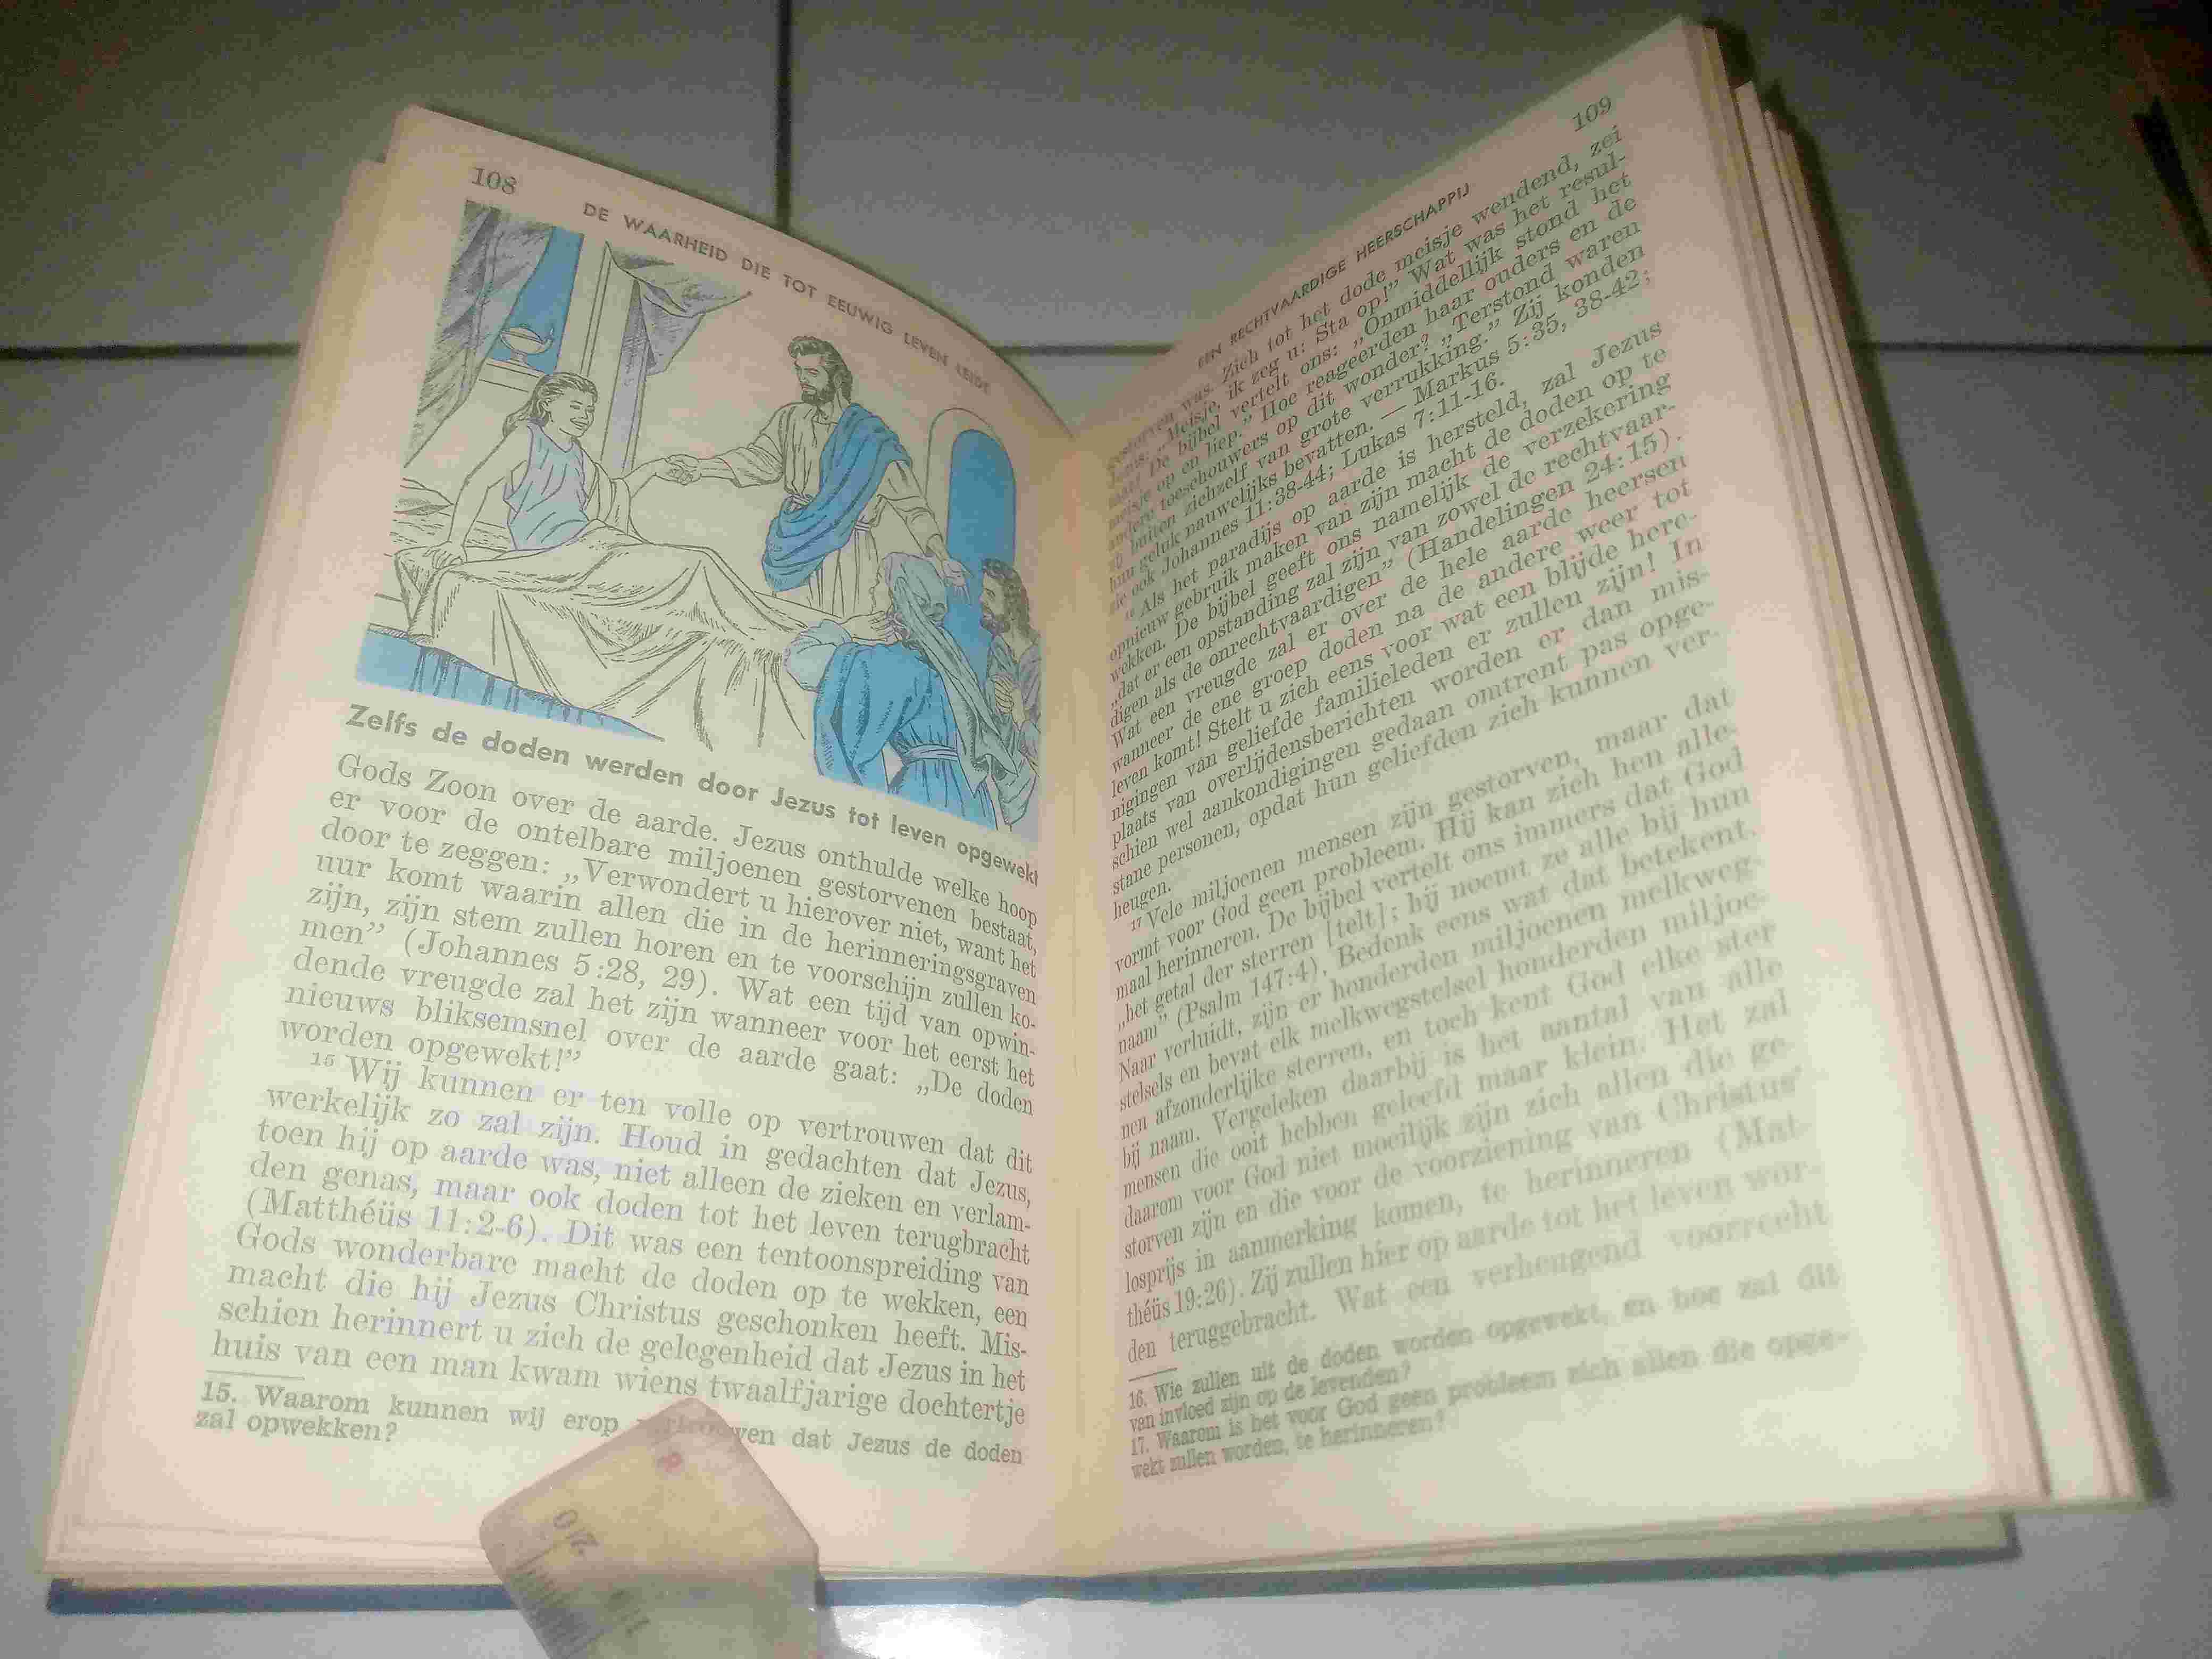 108
DE WAARHEID DIE TOT EEUWIG LEVEN LEIDT
Zelfs de doden werden door Jezus tot leven opgewekt
Gods Zoon over de aarde. Jezus onthulde welke hoop
er voor de ontelbare miljoenen gestorvenen bestaat,
door te zeggen: „Verwondert u hierover niet, want het
uur komt waarin allen die in de herinneringsgraven
zijn, zijn stem zullen horen en te voorschijn zullen ko-
men” (Johannes 5:28, 29). Wat een tijd van opwin-
dende vreugde zal het zijn wanneer voor het eerst het
nieuws bliksemsnel over de aarde gaat: „De doden
worden opgewekt!”
15 Wij kunnen er ten volle op vertrouwen dat dit
werkelijk zo zal zijn. Houd in gedachten dat Jezus,
toen hij op aarde was, niet alleen de zieken en verlam-
den genas, maar ook doden tot het leven terugbracht
(Matthéüs 11:2-6). Dit was een tentoonspreiding van
Gods wonderbare macht de doden op te wekken, een
macht die hij Jezus Christus geschonken heeft. Mis-
schien herinnert u zich de gelegenheid dat Jezus in het
huis van een man kwam wiens twaalfjarige dochtertje
15. Waarom kunnen wij erop vertrouwen dat Jezus de doden
zal opwekken?
109
EEN RECHTVAARDIGE HEERSCHAPPIJ
gestorven was. Zich tot het dode meisje wendend, zei
Jezus: „Meisje, ik zeg u: Sta op!” Wat was het resul-
taat? De bijbel vertelt ons: „Onmiddellijk stond het
meisje op en liep.” Hoe reageerden haar ouders en de
andere toeschouwers op dit wonder? „Terstond waren
zij buiten zichzelf van grote verrukking.” Zij konden
hun geluk nauwelijks bevatten. — Markus 5:35, 38-42;
zie ook Johannes 11:38-44; Lukas 7:11-16.
16 Als het paradijs op aarde is hersteld, zal Jezus
opnieuw gebruik maken van zijn macht de doden op te
wekken. De bijbel geeft ons namelijk de verzekering
„dat er een opstanding zal zijn van zowel de rechtvaar-
digen als de onrechtvaardigen” (Handelingen 24:15).
Wat een vreugde zal er over de hele aarde heersen
wanneer de ene groep doden na de andere weer tot
leven komt! Stelt u zich eens voor wat een blijde here-
nigingen van geliefde familieleden er zullen zijn! In
plaats van overlijdensberichten worden er dan mis-
schien wel aankondigingen gedaan omtrent pas opge-
stane personen, opdat hun geliefden zich kunnen ver-
heugen.
17 Vele miljoenen mensen zijn gestorven, maar dat
vormt voor God geen probleem. Hij kan zich hen alle-
maal herinneren. De bijbel vertelt ons immers dat God
„het getal der sterren [telt]; hij noemt ze alle bij hun
naam” (Psalm 147:4). Bedenk eens wat dat betekent.
Naar verluidt, zijn er honderden miljoenen melkweg-
stelsels en bevat elk melkwegstelsel honderden miljoe-
nen afzonderlijke sterren, en toch kent God elke ster
bij naam. Vergeleken daarbij is het aantal van alle
mensen die ooit hebben geleefd maar klein. Het zal
daarom voor God niet moeilijk zijn zich allen die ge-
storven zijn en die voor de voorziening van Christus’
losprijs in aanmerking komen, te herinneren (Mat-
théüs 19:26). Zij zullen hier op aarde tot het leven wor-
den teruggebracht. Wat een verheugend voorrecht
16. Wie zullen uit de doden worden opgewekt, en hoe zal dit
van invloed zijn op de levenden?
17. Waarom is het voor God geen probleem zich allen die opge-
wekt zullen worden, te herinneren?